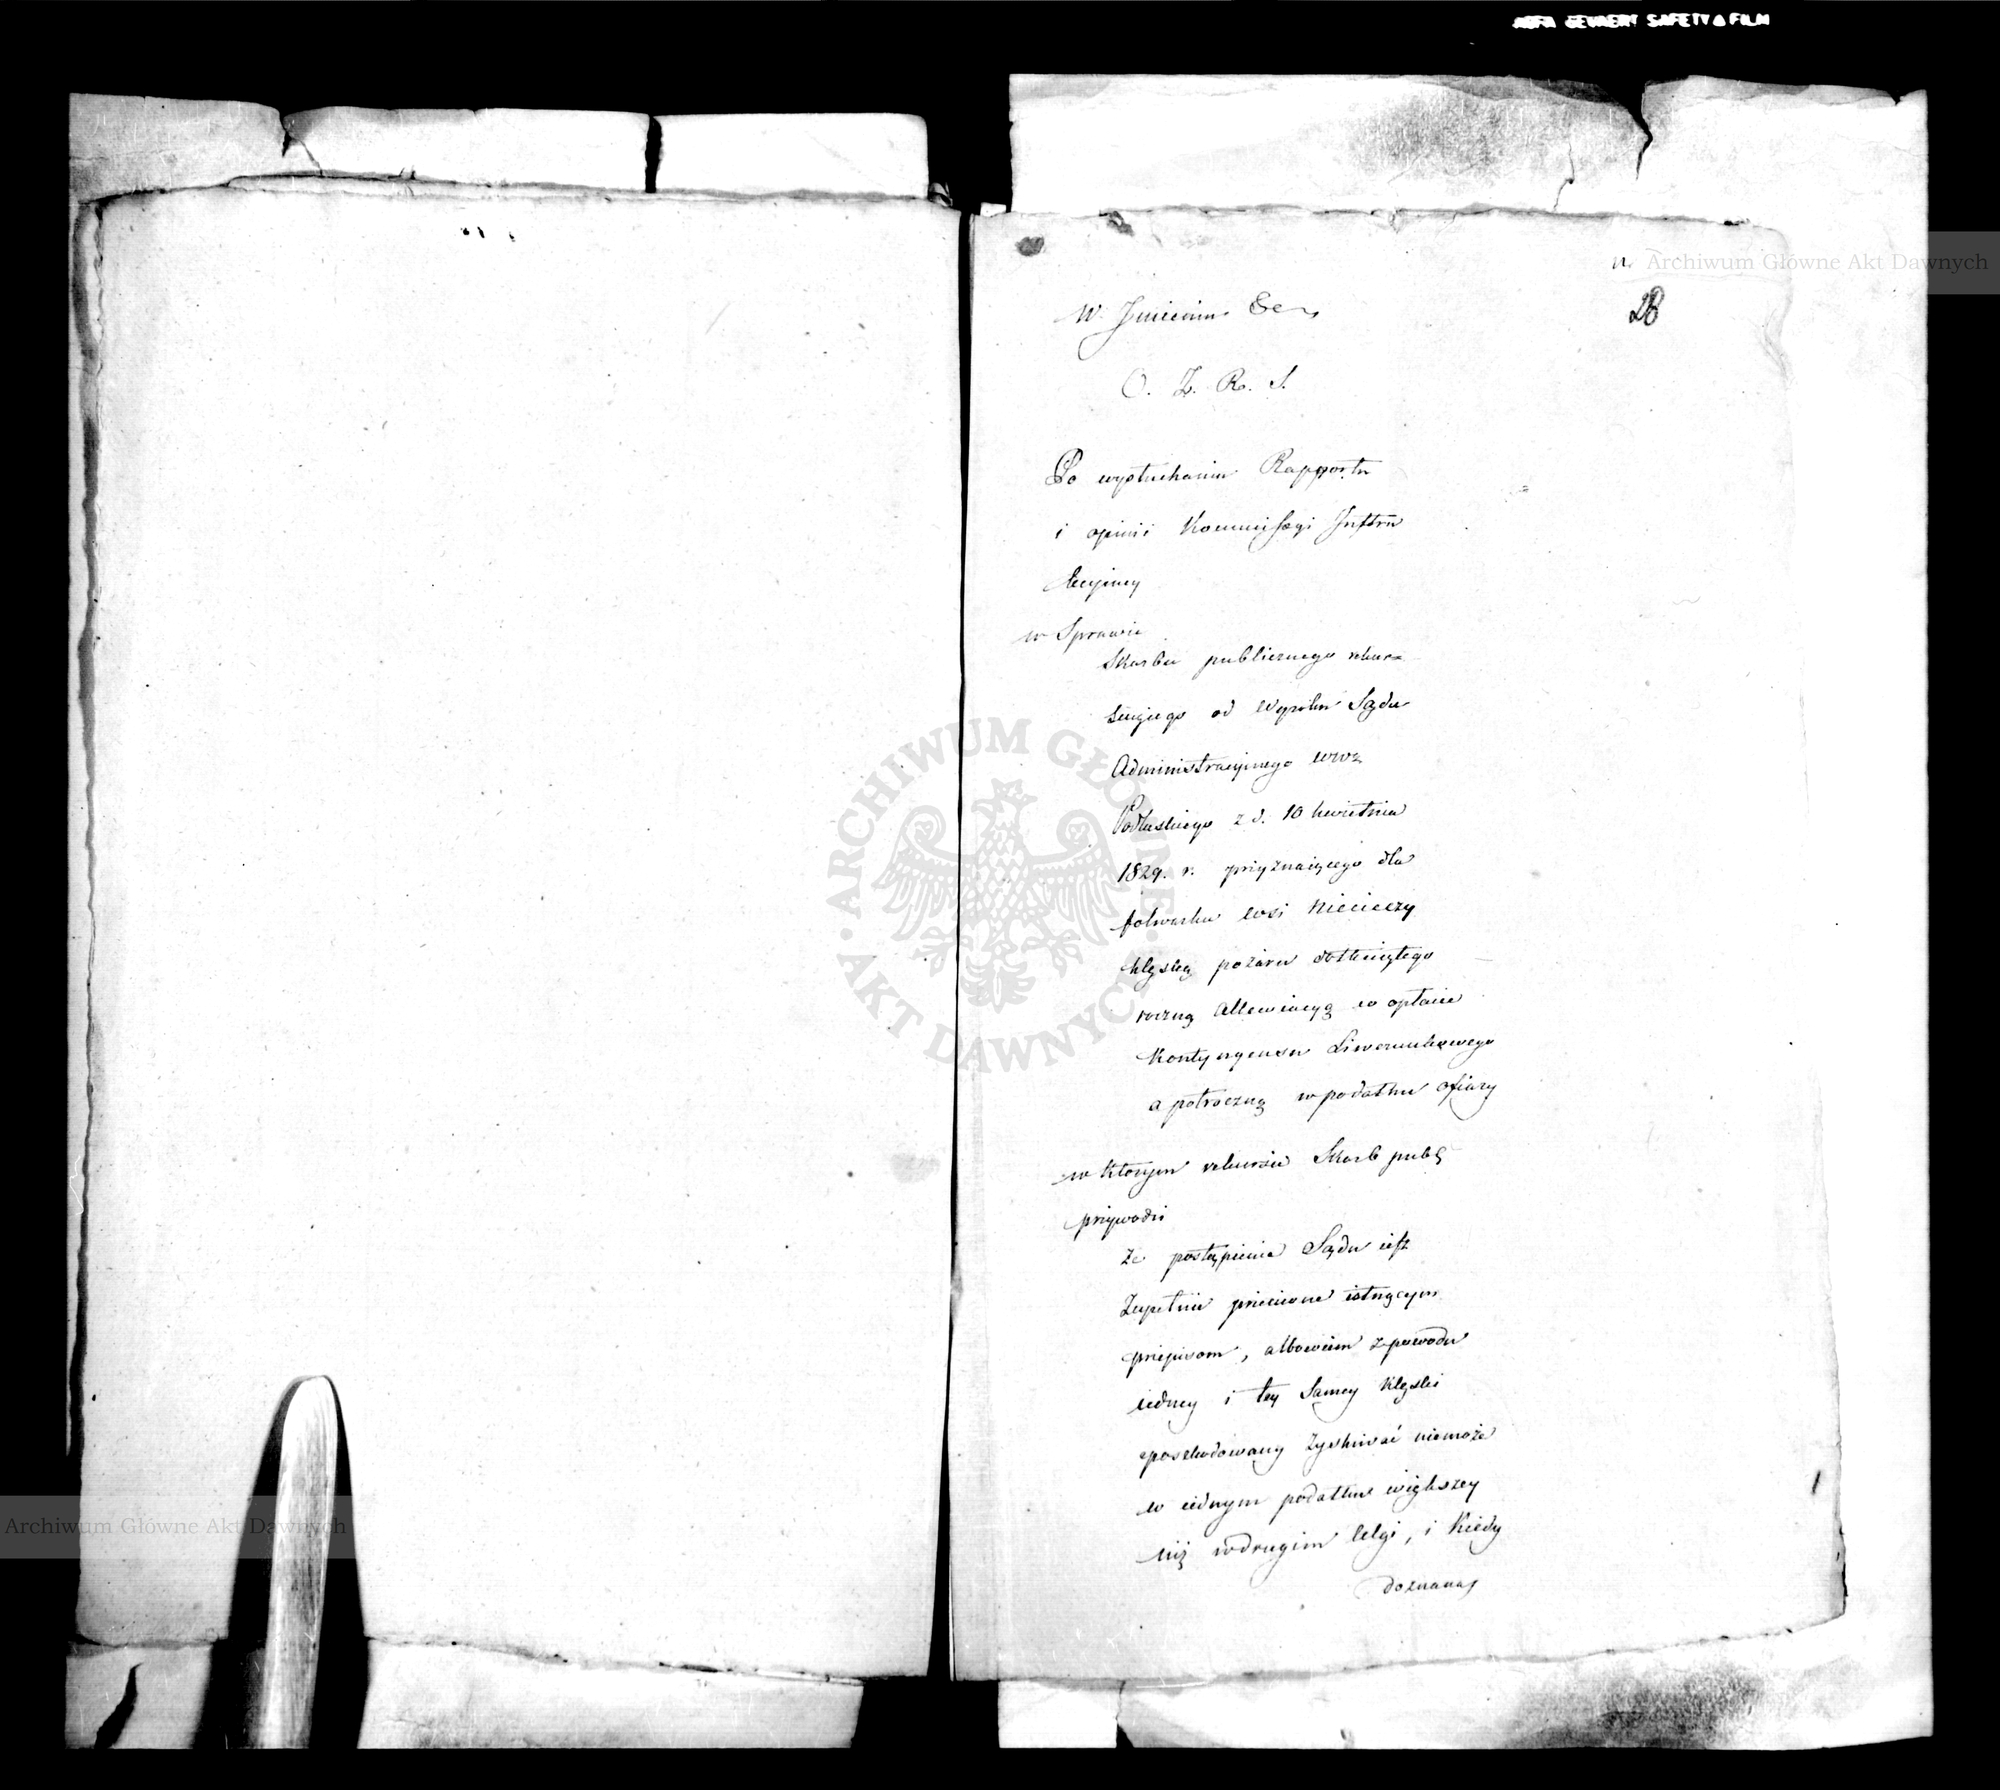 AGFA GEVAERT SAFETY FILM
Archiwum Główne Akt Dawnych
28
W Jmieniu &c
O. Z. R. S.
Po wysłuchaniu Rapportu
i opinii Kommissyi Instru
kcyiney
w Sprawie
Skarbu publicznego rekur=
suiącego od Wyroku Sądu
Administracyinego wwa
Podlaskiego z d. 10 kwietnia
1829. r. przyznaiącego dla
folwarku wsi Niecieczy
klęską pożaru dotkniętego
roczną allewiacyą w opłacie
Kontyngensu Liwerunkowego
a półroczną w podatku ofiary
w którym rekursie Skarb publ
przywodzi
że postąpienie Sądu iest
zupełnie przeciwne istnącym
przepisom, albowiem z powodu
iedney i tey Samey klęski
poszkodowany zyskiwać niemoże
w iednym podatku większey
niż w drugim ulgi, i kiedy
doznana
ARCHIWUM GŁÓWNE AKT DAWNYCH
Archiwum Główne Akt Dawnych